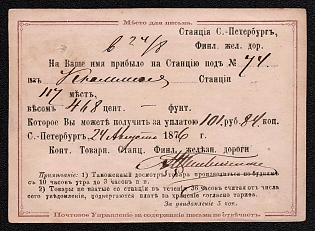 Мѣсто для письма.
Станція С.-Петербургъ,
в 24/8 Финл. жел. дор.
На Ваше имя прибыло на Станцію подъ № 74.
изъ Станціи
117 мѣстъ,
вѣсомъ 468 цент. — фунт.
Которое Вы можете получить за уплатою 101 руб. 84 коп.
С.-Петербургъ, 24 Августа 1876 г.
Конт. Товарн. Станц. Финл. желѣзн. дороги
Примѣчаніе: 1) Таможенный досмотръ товара производится по буднямъ
съ 10 часовъ утра до 3 часовъ п. п.
2) Товары не взятые со станціи въ теченіе 36 часовъ считая отъ числа
сего увѣдомленія, подвергаются платѣ за храненіе согласно тарифа.
За увѣдомленіе 5 коп.
Почтовое Управленіе за содержаніе письма не отвѣчаетъ.